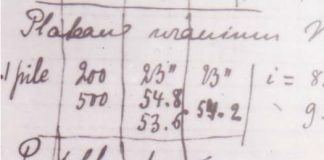 Plateau uranium N
1 pile 200 23" 23" i = 8
500 54.8 54.2 9
53.6